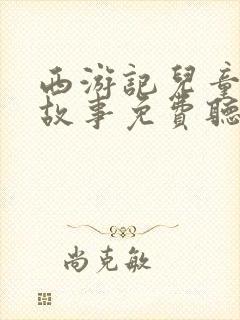 西游記兒童
故事免費聽
尚克敏